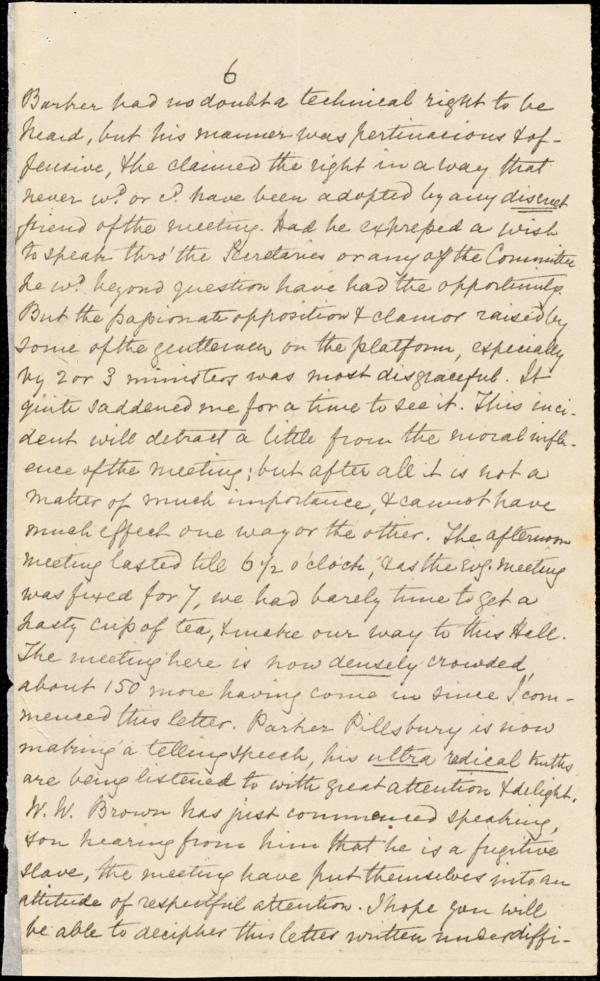 6
Barker had no doubt a technical right to be
heard, but his manner was pertinacious & of-
fensive, & he claimed the right in a way that
never wd. or cd. have been adopted by any discreet
friend of the meeting. Had he expressed a wish
to speak thro' the Secretaries or any of the Committee
he wd. beyond question have had the opportunity.
But the passionate opposition & clamor raised by
some of the gentlemen on the platform, especially
by 2 or 3 ministers was most disgraceful. It
quite saddened me for a time to see it. This inci-
dent will detract a little from the moral influ-
ence of the meeting; but after all it is not a
matter of much importance, & cannot have
much effect one way or the other. The afternoon
meeting lasted till 6 1/2 o'clock, & as the Evg. meeting
was fixed for 7, we had barely time to get a
hasty cup of tea, & make our way to this Hall.
The meeting here is now densely crowded,
about 150 more having come in since I com-
menced this letter. Parker Pillsbury is now
making a telling speech, his ultra radical truths
are being listened to with great attention & delight.
W. W. Brown has just commenced speaking,
& on hearing from him that he is a fugitive
slave, the meeting have put themselves into an
attitude of respectful attention. I hope you will
be able to decipher this letter written under diffi-